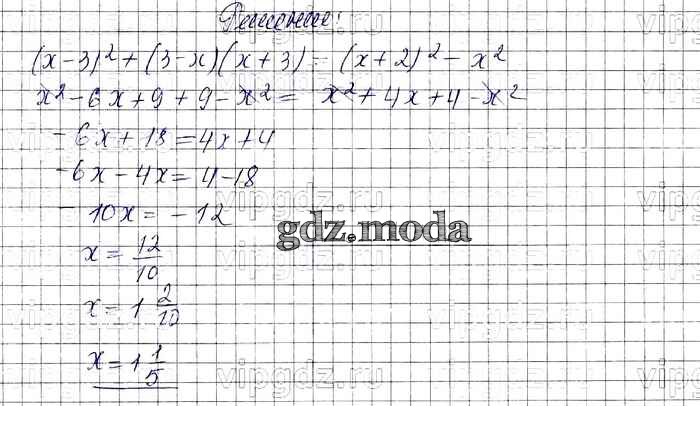 Решение:
(x-3)² + (3-x)(x+3) = (x+2)² - x²
x² - 6x + 9 + 9 - x² = x² + 4x + 4 - x²
-6x + 18 = 4x + 4
-6x - 4x = 4 - 18
-10x = -12
gdz.moda
x = 12/10
x = 1 2/10
x = 1 1/5
vipgdz.ru